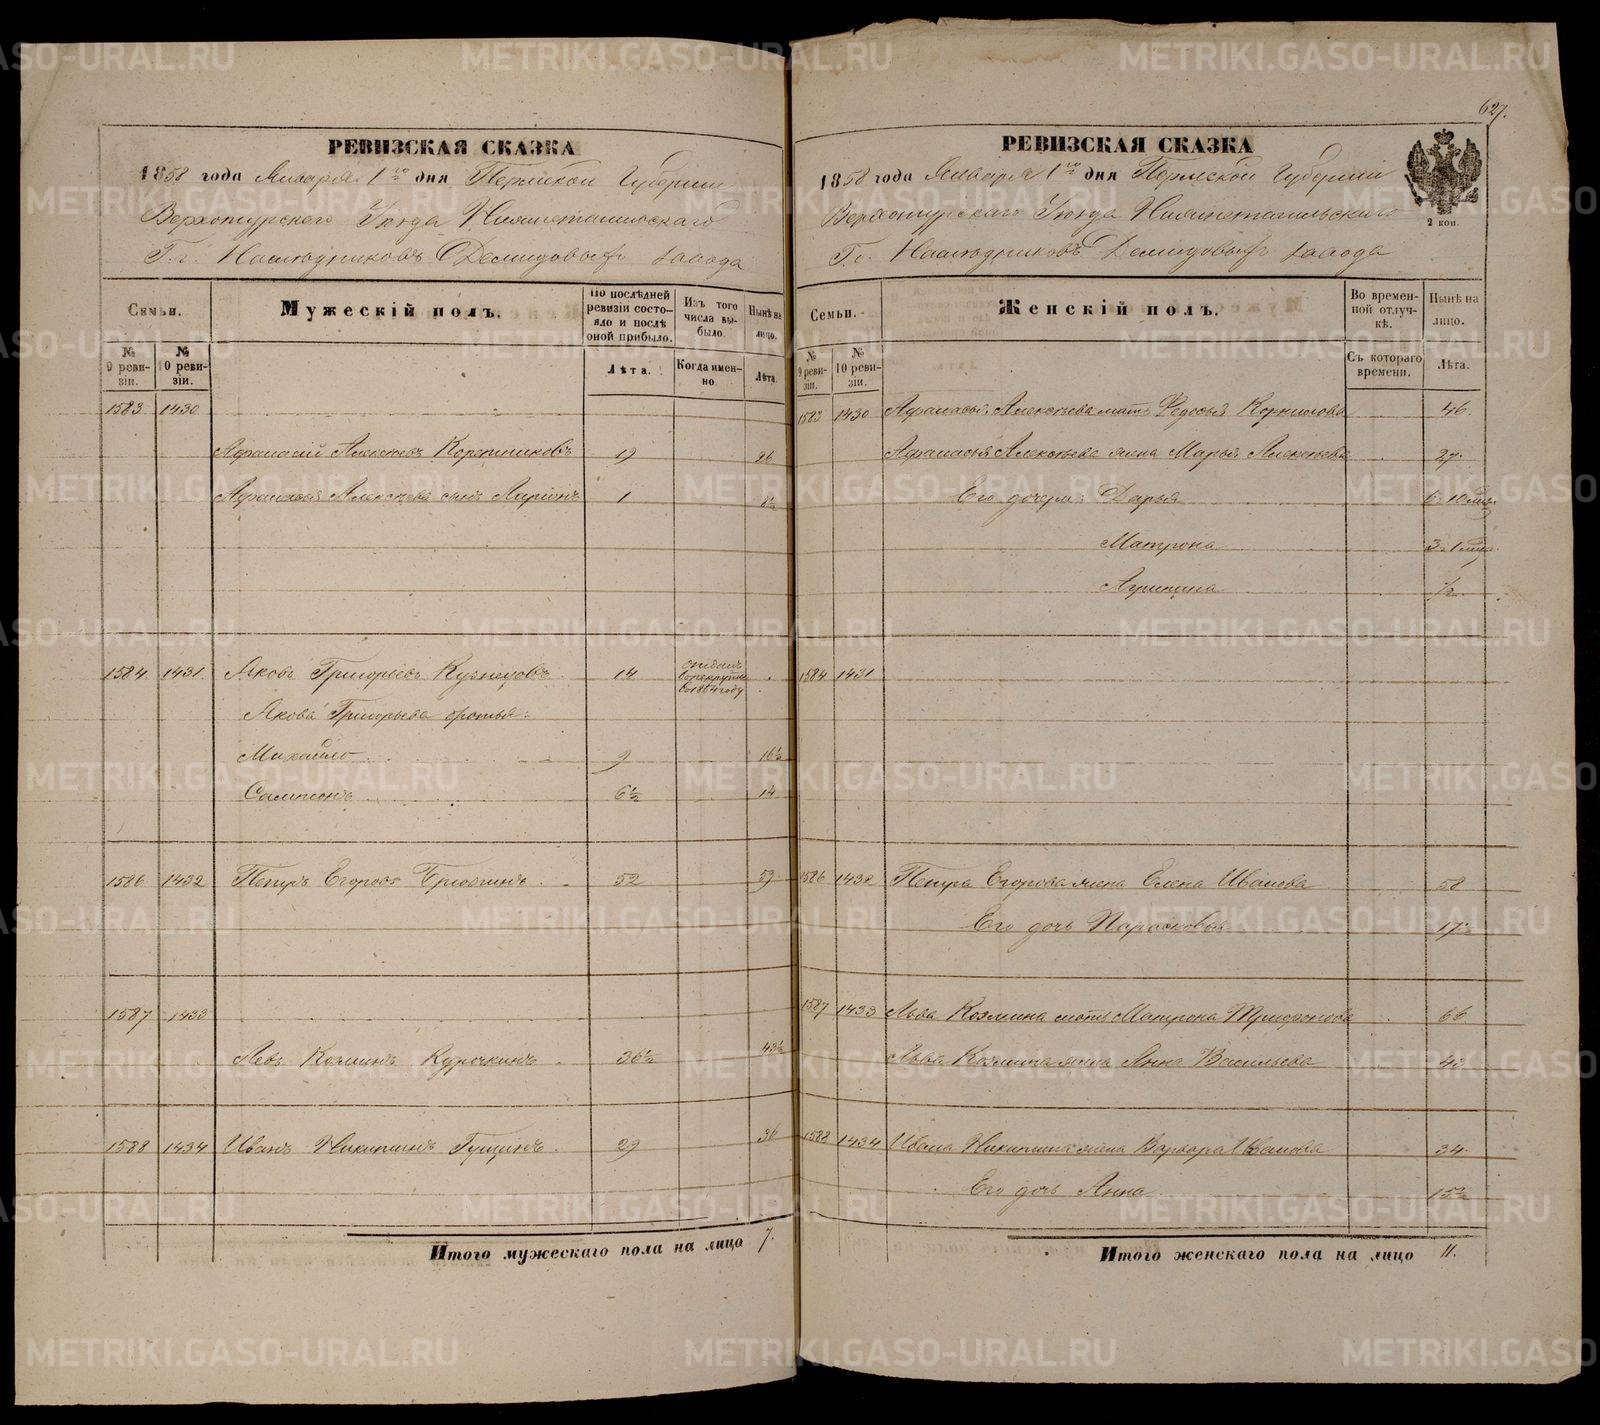 627.
РЕВИЗСКАЯ СКАЗКА
1858 года Января 1го дня Пермской Губернии
Верхотурскаго Уезда Нижнетагильскаго
Г.г. Наследниковъ Демидовыхъ завода
Семьи.
Мужескій полъ.
По послѣдней ревизіи состояло и послѣ оной прибыло.
Изъ того числа выбыло.
Нынѣ на лицо.
№ 9 ревизіи.
№ 10 ревизіи.
Лѣта.
Когда именно.
Лѣта.
1583 1430
Афанасий Алексеевъ Коротниковъ 19 26
Афанасья Алексеева сынъ Ларионъ 1 8½
1584 1431 Яковъ Григорьевъ Кузнецовъ 14
Якова Григорьева братья:
Михайло 9 16½
Сампсонъ 6½ 14
1586 1432 Петръ Егоровъ 52 59
1587 1433
Левъ Козминъ Курочкинъ 36½ 43½
1588 1434 Иванъ Никитинъ Гущинъ 29 36
Итого мужескаго пола на лицо 7.
РЕВИЗСКАЯ СКАЗКА
1858 года Января 1го дня Пермской Губерніи
Верхотурскаго Уезда Нижнетагильскаго
Г.г. Наследниковъ Демидовыхъ завода
2 коп.
Семьи.
Женскій полъ.
Во временной отлучкѣ.
Нынѣ на лицо.
№ 9 ревизіи.
№ 10 ревизіи.
Съ котораго времени.
Лѣта.
1583 1430 Афанасья Алексеева мать Федосья Корнилова 46.
Афанасья Алексеева жена Марья Алексеева 27.
Его дочери: Дарья 6. 10 мес.
Матрона 3. 1 мца.
Агрипина ½.
1584 1431
1586 1432 Петра Егорова жена Елена Иванова 58
Его дочь Парасковья 17½
1587 1433 Льва Козмина мать Матрона Трифонова 66
Льва Козмина жена Анна Васильева 43
1588 1434 Ивана Никитина жена Варвара Иванова 34.
Его дочь Анна 15½
Итого женскаго пола на лицо 11.
METRIKI.GASO-URAL.RU